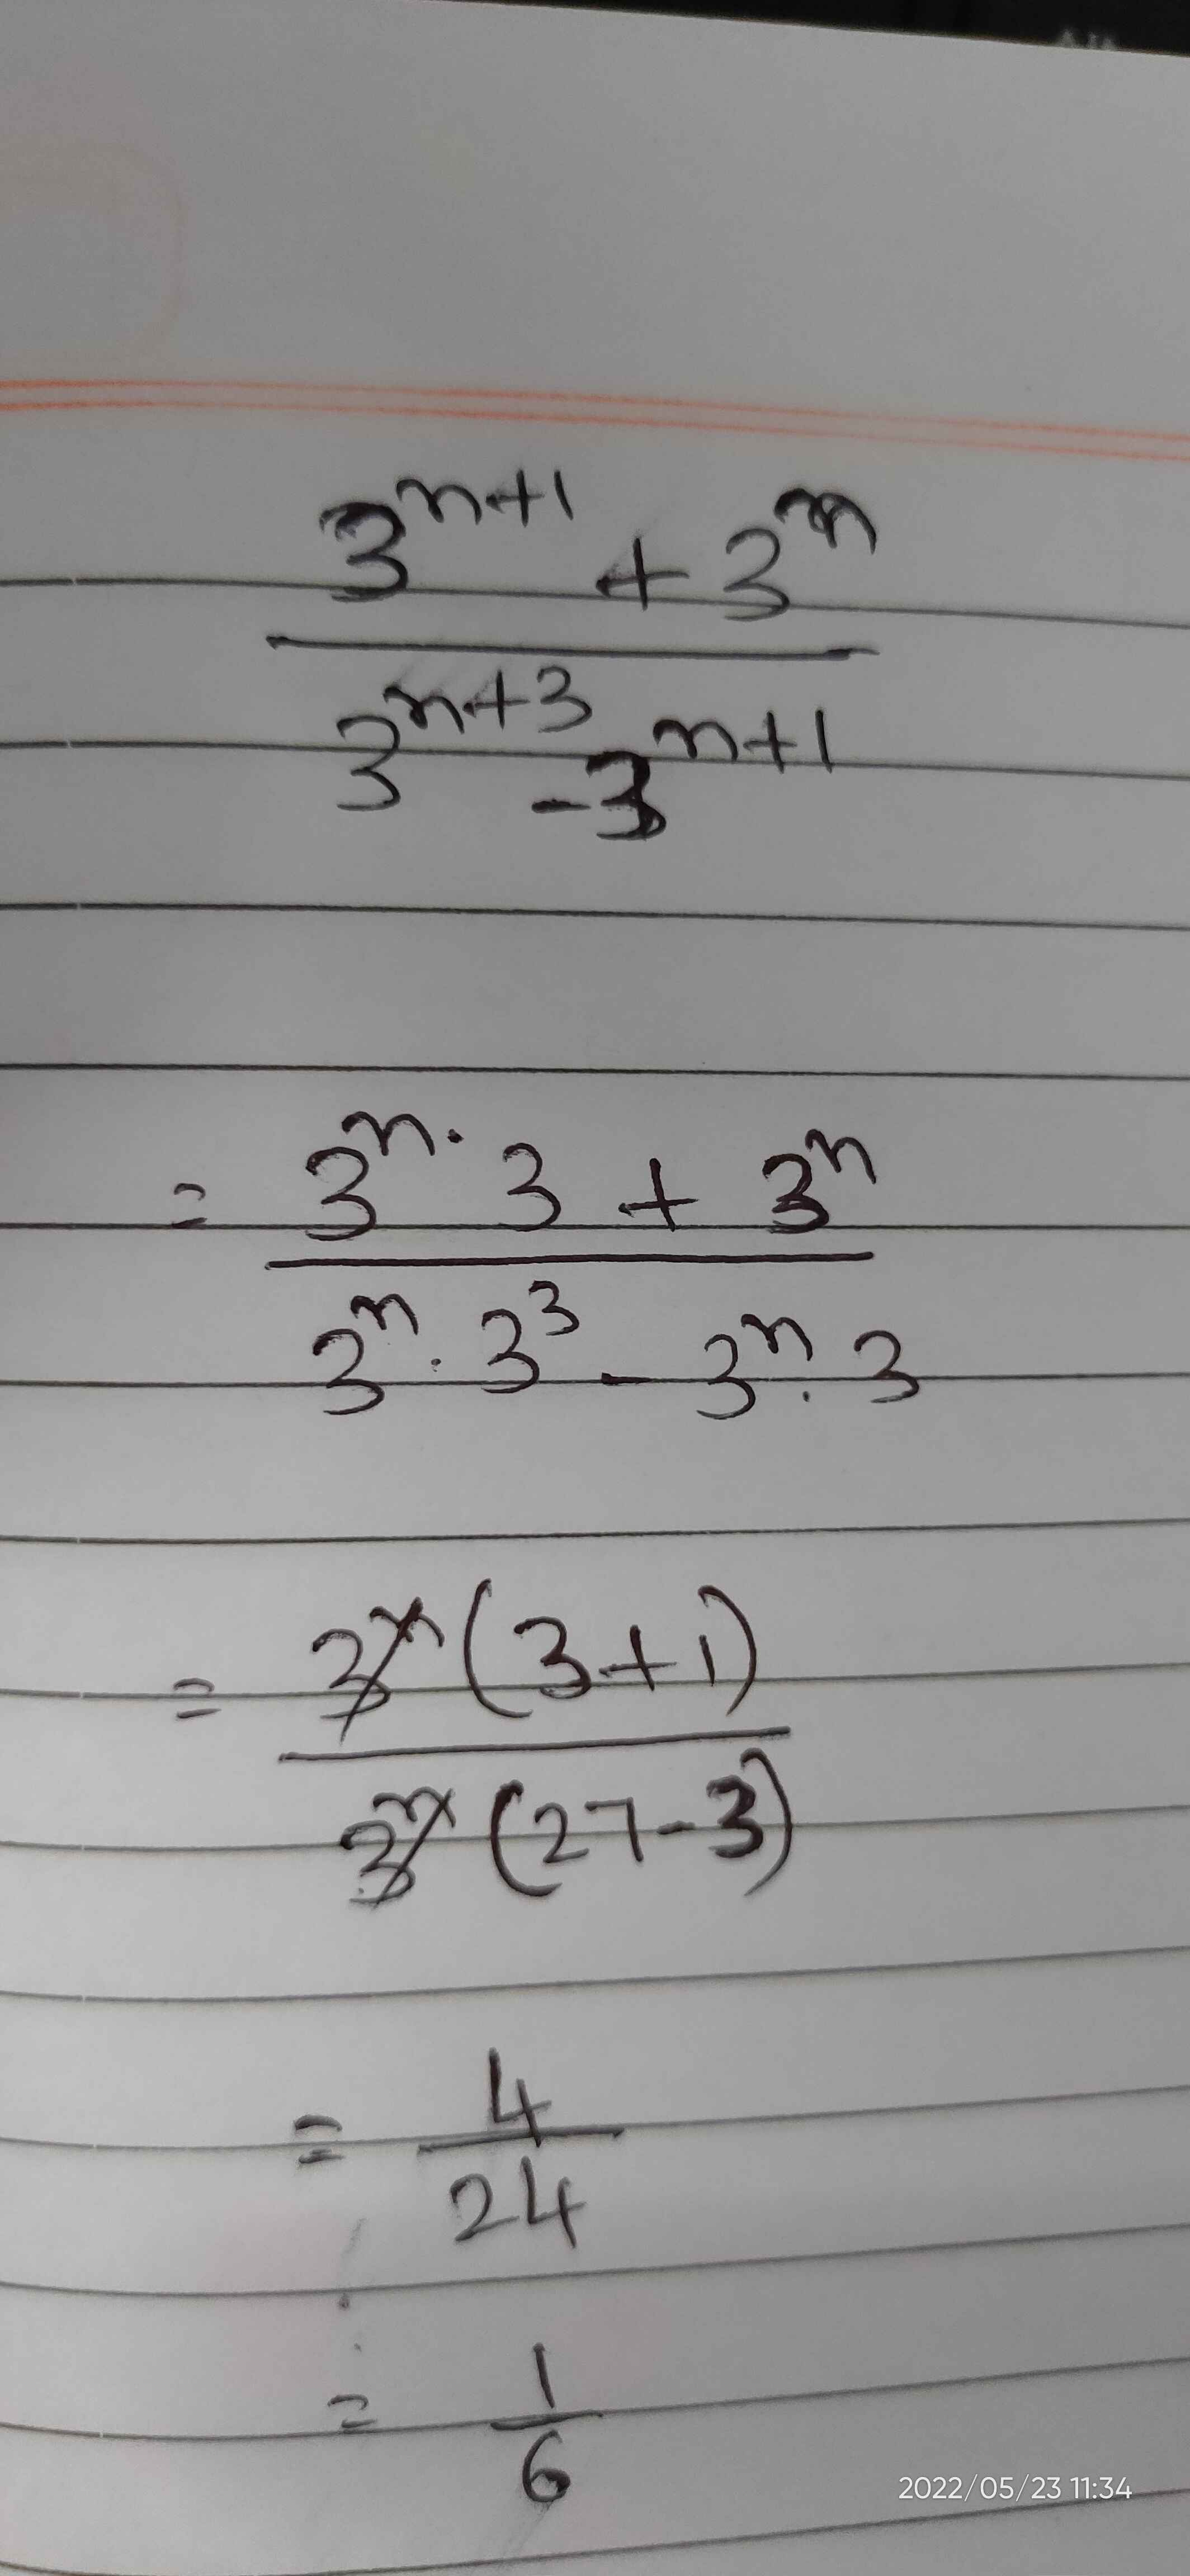 3^{n+1} + 3^n
3^{n+3} - 3^{n+1}
= 3^n . 3 + 3^n
3^n . 3^3 - 3^n . 3
= 3^n (3+1)
3^n (27-3)
= 4
24
= 1
6
2022/05/23 11:34